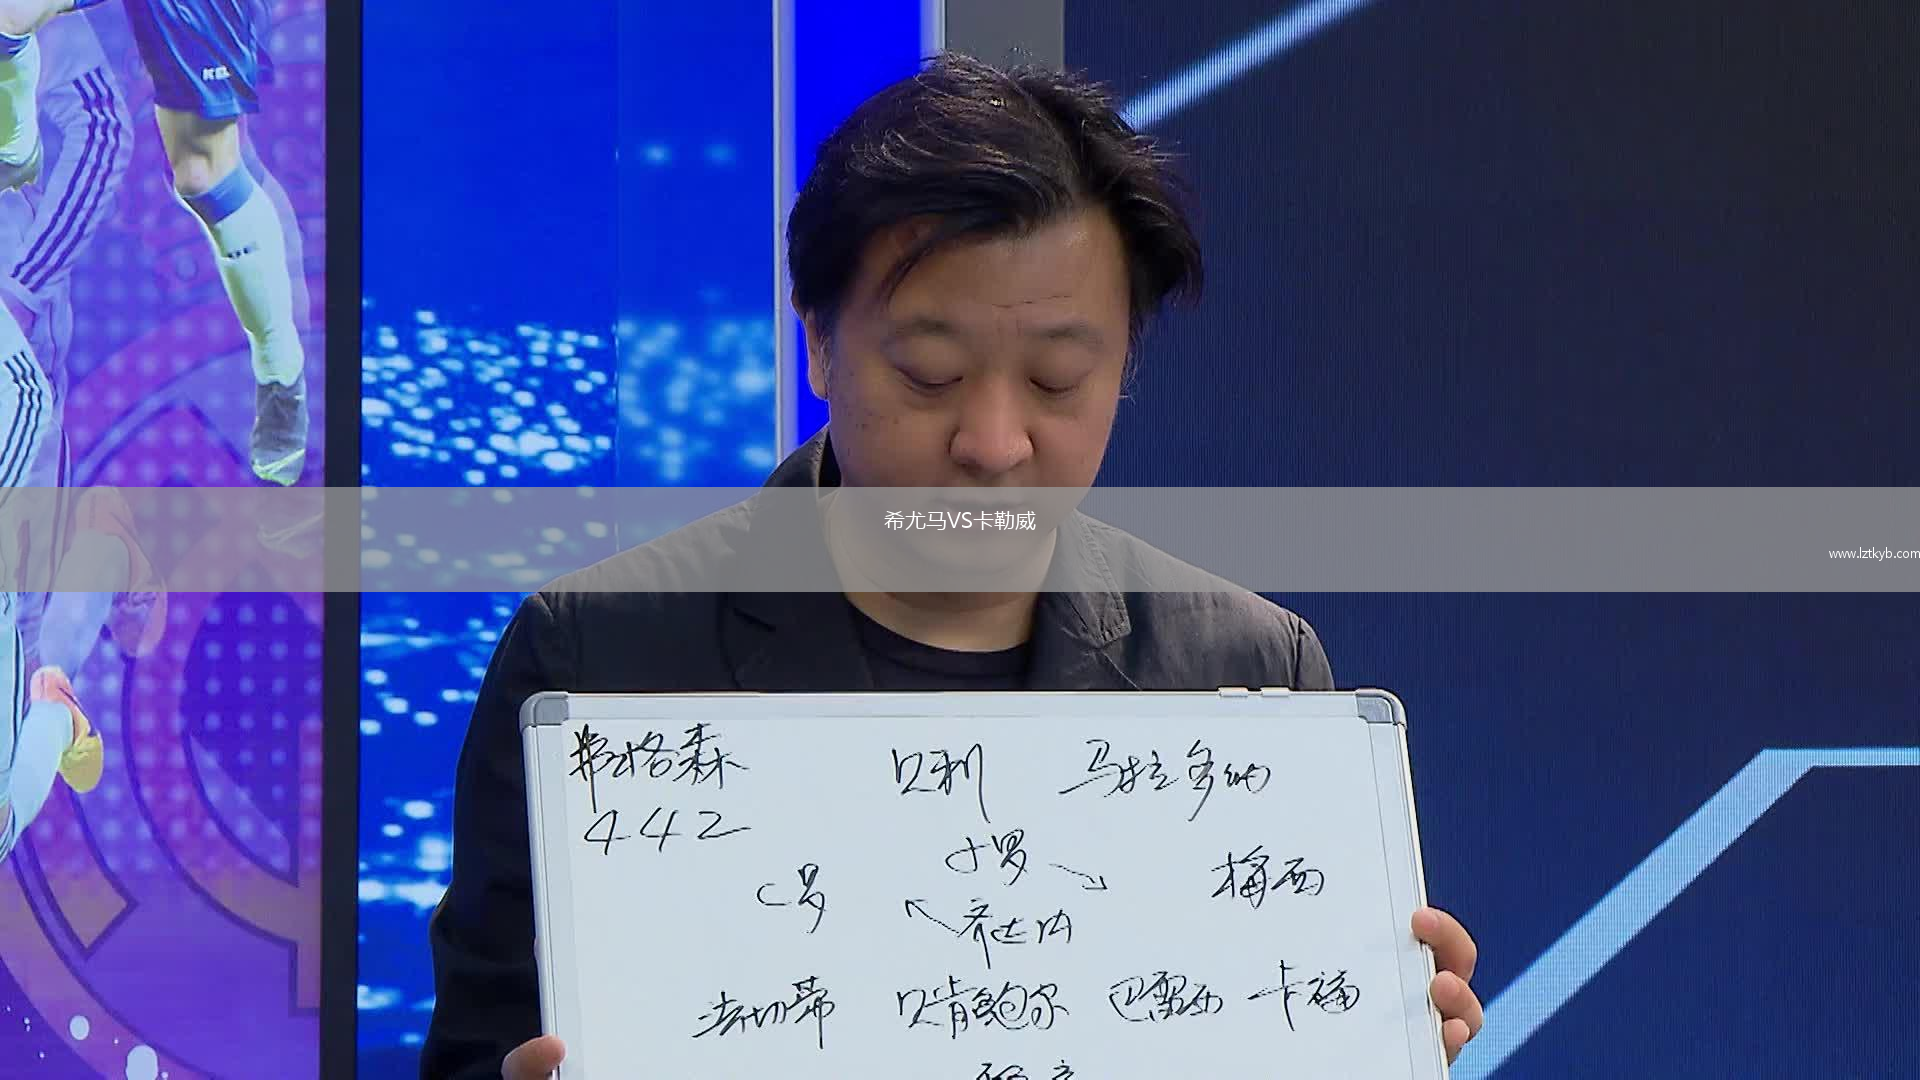 希尤马VS卡勒威
www.lztkyb.com
弗格森 贝利 马拉多纳
442
小罗
C罗 梅西
齐达内
法切蒂 贝肯鲍尔 巴雷西 卡福